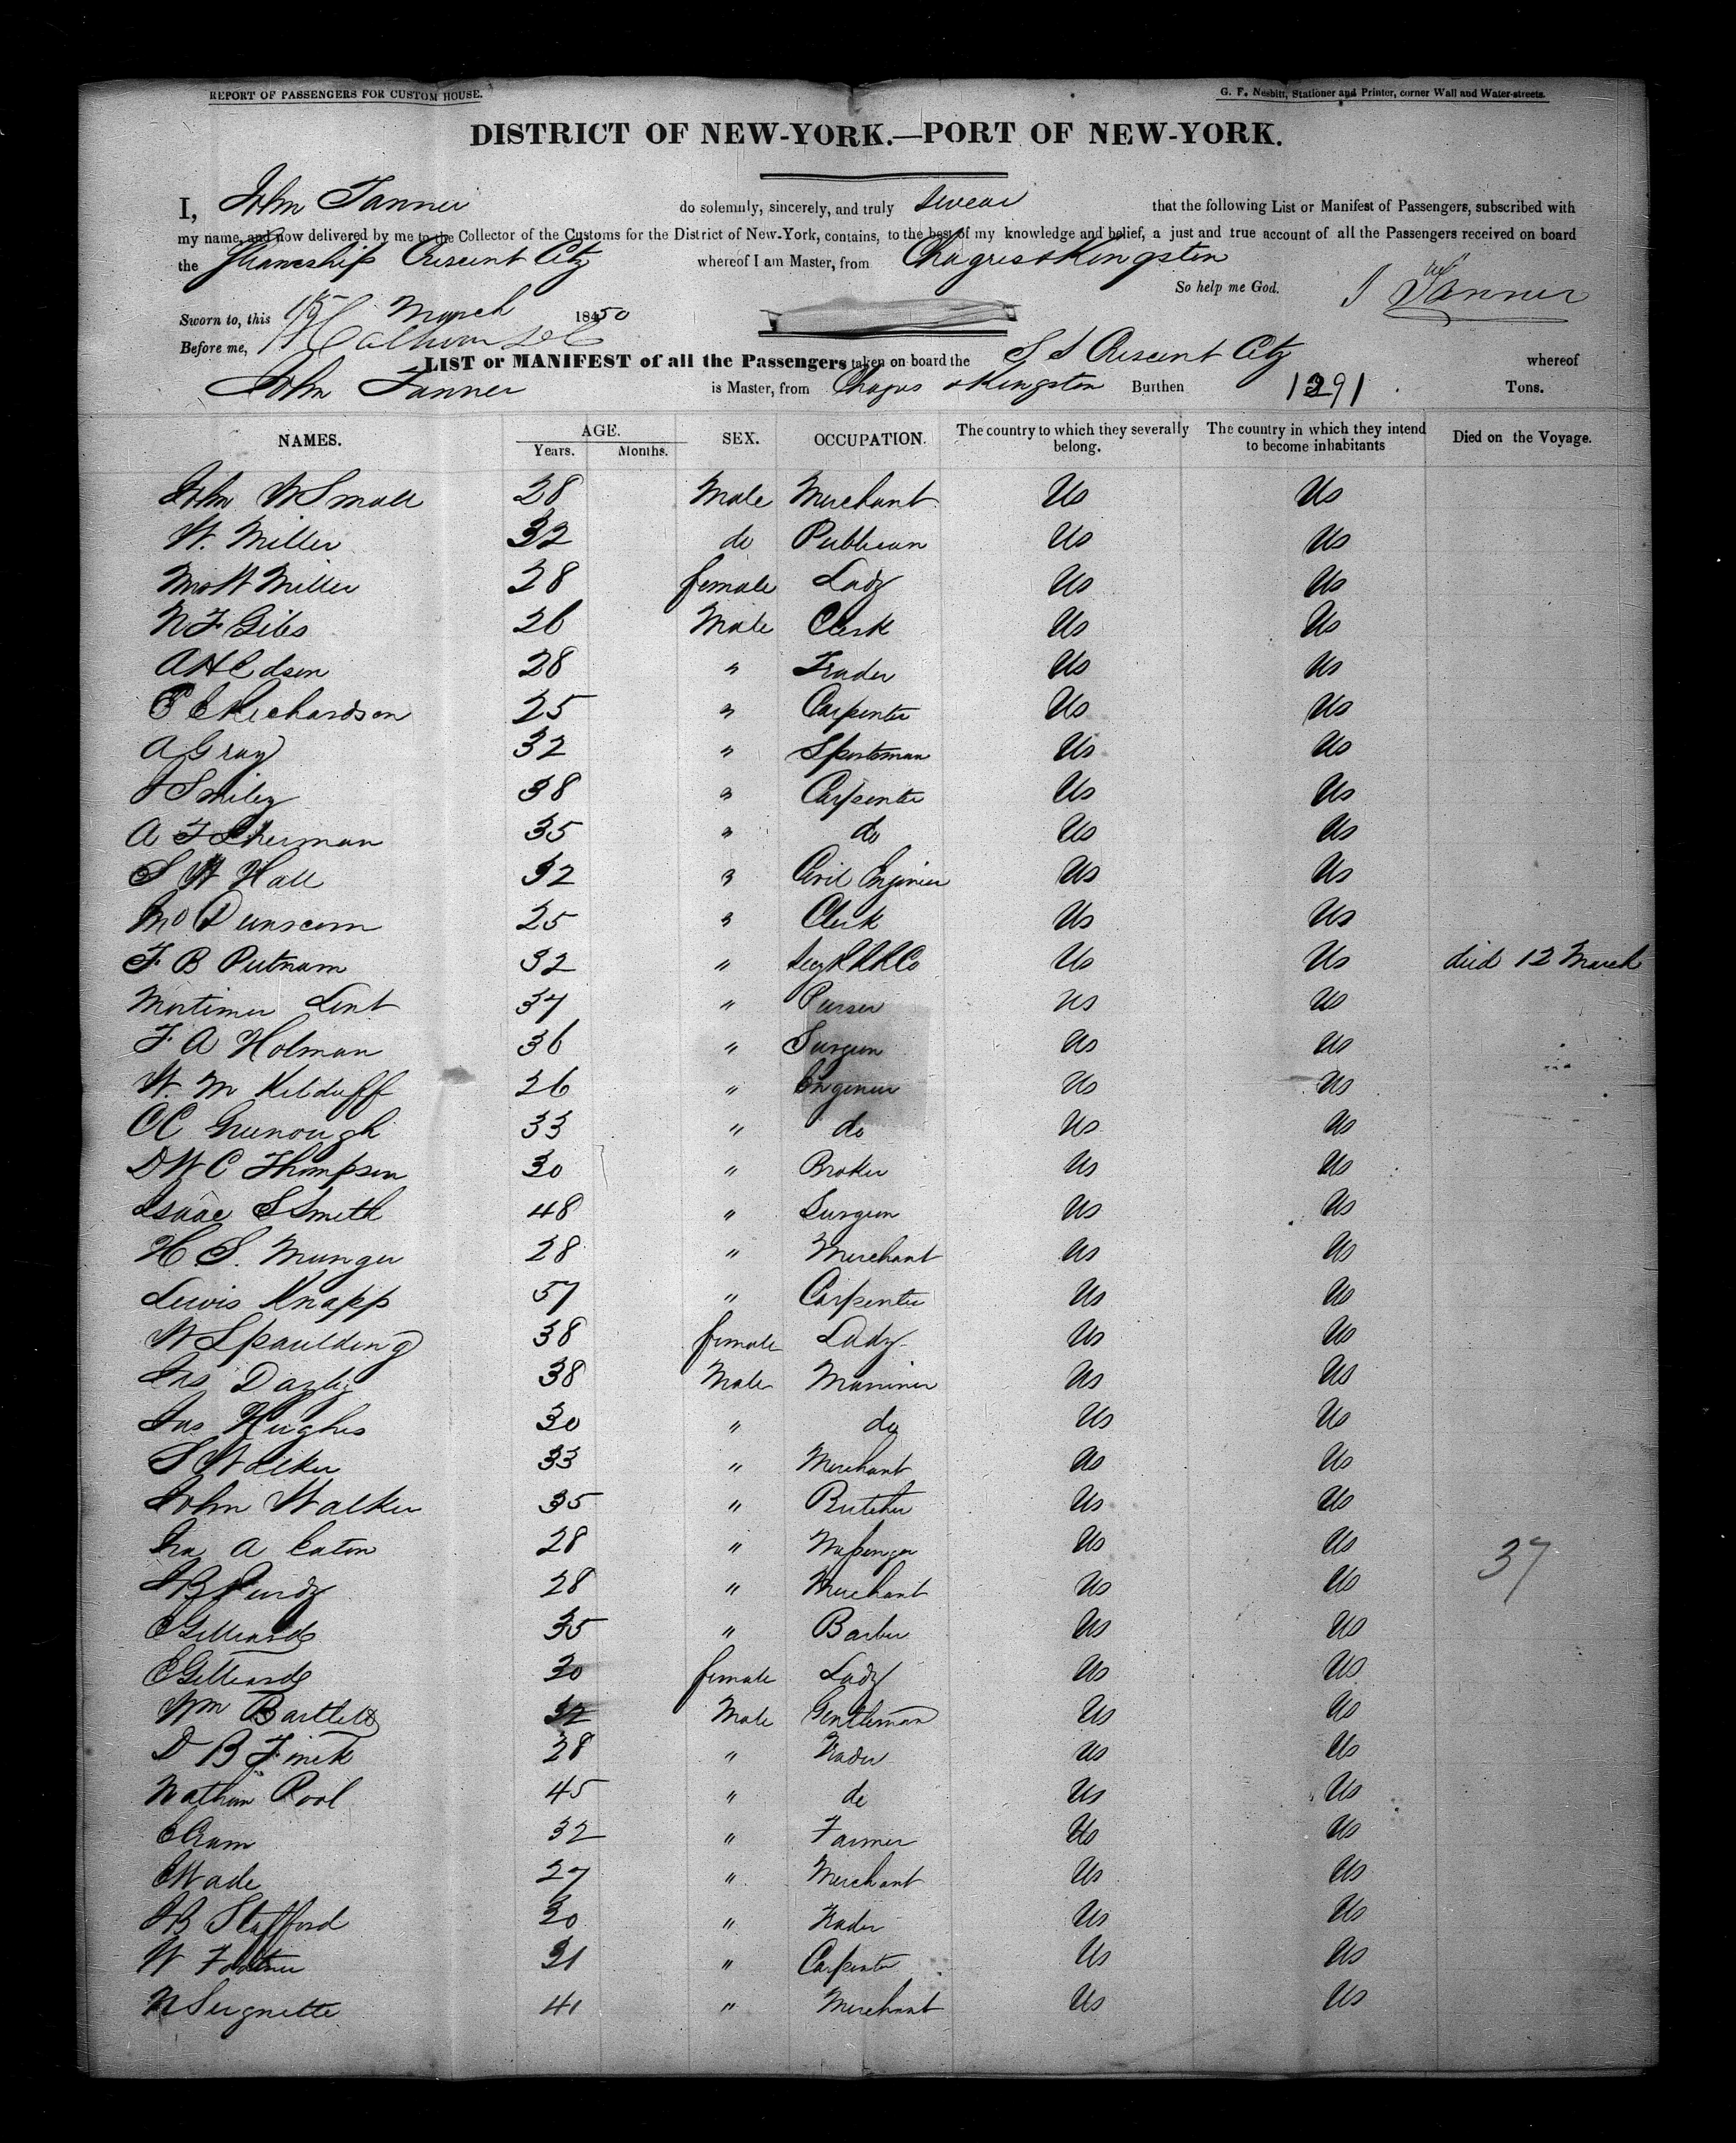 REPORT OF PASSENGERS FOR CUSTOM HOUSE. G. F. Nesbitt, Stationer and Printer, corner Wall and Water-streets.
DISTRICT OF NEW-YORK.—PORT OF NEW-YORK.
I, John Tanner do solemnly, sincerely, and truly swear that the following List or Manifest of Passengers, subscribed with
my name, and now delivered by me to the Collector of the Customs for the District of New-York, contains, to the best of my knowledge and belief, a just and true account of all the Passengers received on board
the Steamship Crescent City whereof I am Master, from Chagres & Kingston
So help me God. J Tanner
Sworn to, this 15 March 1850
Before me,
LIST or MANIFEST of all the Passengers taken on board the S S Crescent City whereof
John Tanner is Master, from Chagres & Kingston Burthen 1291 Tons.
NAMES. AGE. Years. Months. SEX. OCCUPATION. The country to which they severally belong. The country in which they intend to become inhabitants Died on the Voyage.
John W Small 28 Male Merchant Us Us
W. Miller 32 do Publican Us Us
Mrs W Miller 28 female Lady Us Us
N F Gibs 26 Male Clerk Us Us
A H Edson 28 " Trader Us Us
C E Richardson 25 " Carpenter Us Us
A Gray 32 " Sportsman Us Us
J Smiley 38 " Carpenter Us Us
A F Sherman 35 " do Us Us
S W Hall 32 " Civil Enginier Us Us
Dunscom 25 " Clerk Us Us
F B Putnam 32 " Secy R R Co Us Us died 12 March
Mortimer Lent 37 " Purser Us Us
F A Holman 36 " Surgeon Us Us
W. M Kilduff 26 " Enginier Us Us
C C Greenough 33 " do Us Us
D W C Thompson 30 " Broker Us Us
Isaac S Smith 48 " Surgeon Us Us
H S. Munger 28 " Merchant Us Us
Lewis Knapp 57 " Carpenter Us Us
W Spaulding 38 female Lady Us Us
Jno Dayley 38 Male Mariner Us Us
Jas Hughes 30 " do Us Us
S Walker 33 " Merchant Us Us
John Walker 35 " Butcher Us Us
Ira A Eaton 28 " Us Us 37
J B Purdy 28 " Merchant Us Us
C Gilliard 35 " Barber Us Us
C Gilliard 30 female Lady Us Us
Wm Bartlett 32 Male Gentleman Us Us
D B Finck 28 " Trader Us Us
Nathan Pool 45 " do Us Us
C Cram 32 " Farmer Us Us
C Wade 27 " Merchant Us Us
J B Stafford 30 " Trader Us Us
W 31 " Carpenter Us Us
N Seignette 41 " Merchant Us Us